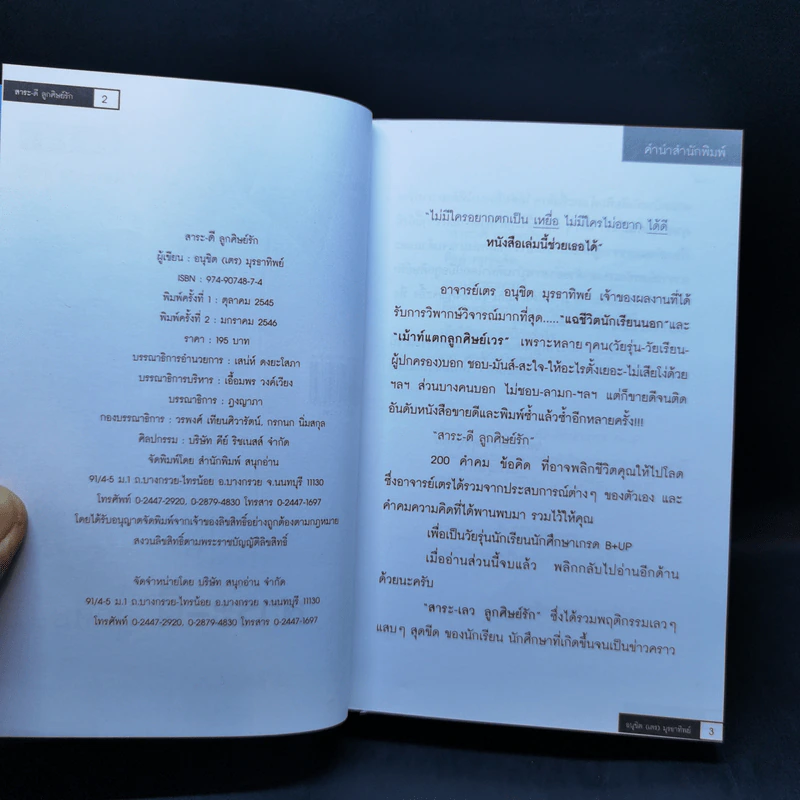 สาระ-ดี ลูกศิษย์รัก 2
สาระ-ดี ลูกศิษย์รัก
ผู้เขียน : อนุชิต (เตร) มุรธาทิพย์
ISBN : 974-90748-7-4
พิมพ์ครั้งที่ 1 : ตุลาคม 2545
พิมพ์ครั้งที่ 2 : มกราคม 2546
ราคา : 195 บาท
บรรณาธิการอำนวยการ : เสน่ห์ ดงยะโสภา
บรรณาธิการบริหาร : เอื้อมพร วงค์เวียง
บรรณาธิการ : ฎงญาภา
กองบรรณาธิการ : วรพงค์ เทียนศิวารัตน์, กรกนก นิ่มสกุล
ศิลปกรรม : บริษัท คีย์ ริชเนสส์ จำกัด
จัดพิมพ์โดย สำนักพิมพ์ สนุกอ่าน
91/4-5 ม.1 ถ.บางกรวย-ไทรน้อย อ.บางกรวย จ.นนทบุรี 11130
โทรศัพท์ 0-2447-2920, 0-2879-4830 โทรสาร 0-2447-1697
โดยได้รับอนุญาตจัดพิมพ์จากเจ้าของลิขสิทธิ์อย่างถูกต้องตามกฎหมาย
สงวนลิขสิทธิ์ตามพระราชบัญญัติลิขสิทธิ์
จัดจำหน่ายโดย บริษัท สนุกอ่าน จำกัด
91/4-5 ม.1 ถ.บางกรวย-ไทรน้อย อ.บางกรวย จ.นนทบุรี 11130
โทรศัพท์ 0-2447-2920, 0-2879-4830 โทรสาร 0-2447-1697
คำนำสำนักพิมพ์
"ไม่มีใครอยากตกเป็น เหยื่อ ไม่มีใครไม่อยาก ได้ดี
หนังสือเล่มนี้ช่วยเธอได้"
อาจารย์เตร อนุชิต มุรธาทิพย์ เจ้าของผลงานที่ได้
รับการวิพากษ์วิจารณ์มากที่สุด....."แฉชีวิตนักเรียนนอก"และ
"เม้าท์แตกลูกศิษย์เวร" เพราะหลายๆคน(วัยรุ่น-วัยเรียน-
ผู้ปกครอง)บอก ชอบ-มันส์-สะใจ-ให้อะไรตั้งเยอะ-ไม่เสียโง่ด้วย
ฯลฯ ส่วนบางคนบอก ไม่ชอบ-ลามก-ฯลฯ แต่ก็ขายดีจนติด
อันดับหนังสือขายดีและพิมพ์ซ้ำแล้วซ้ำอีกหลายครั้ง!!!
"สาระ-ดี ลูกศิษย์รัก"
200 คำคม ข้อคิด ที่อาจพลิกชีวิตคุณให้ไปโลด
ซึ่งอาจารย์เตรได้รวมจากประสบการณ์ต่างๆ ของตัวเอง และ
คำคมความคิดที่ได้พานพบมา รวมไว้ให้คุณ
เพื่อเป็นวัยรุ่นนักเรียนนักศึกษาเกรด B+UP
เมื่ออ่านส่วนนี้จบแล้ว พลิกกลับไปอ่านอีกด้าน
ด้วยนะครับ
"สาระ-เลว ลูกศิษย์รัก" ซึ่งได้รวมพฤติกรรมเลวๆ
แสบๆ สุดขีด ของนักเรียน นักศึกษาที่เกิดขึ้นจนเป็นข่าวคราว
อนุชิต (เตร) มุรธาทิพย์ 3